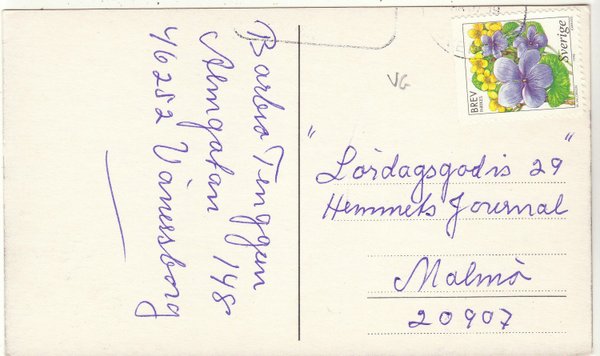 Barbro Tenggren
Almgatan 148
46252 Vänersborg
VG
BREV
INRIKES
Sverige
"Lördagsgodis 29"
Hemmets Journal
Malmö
20907